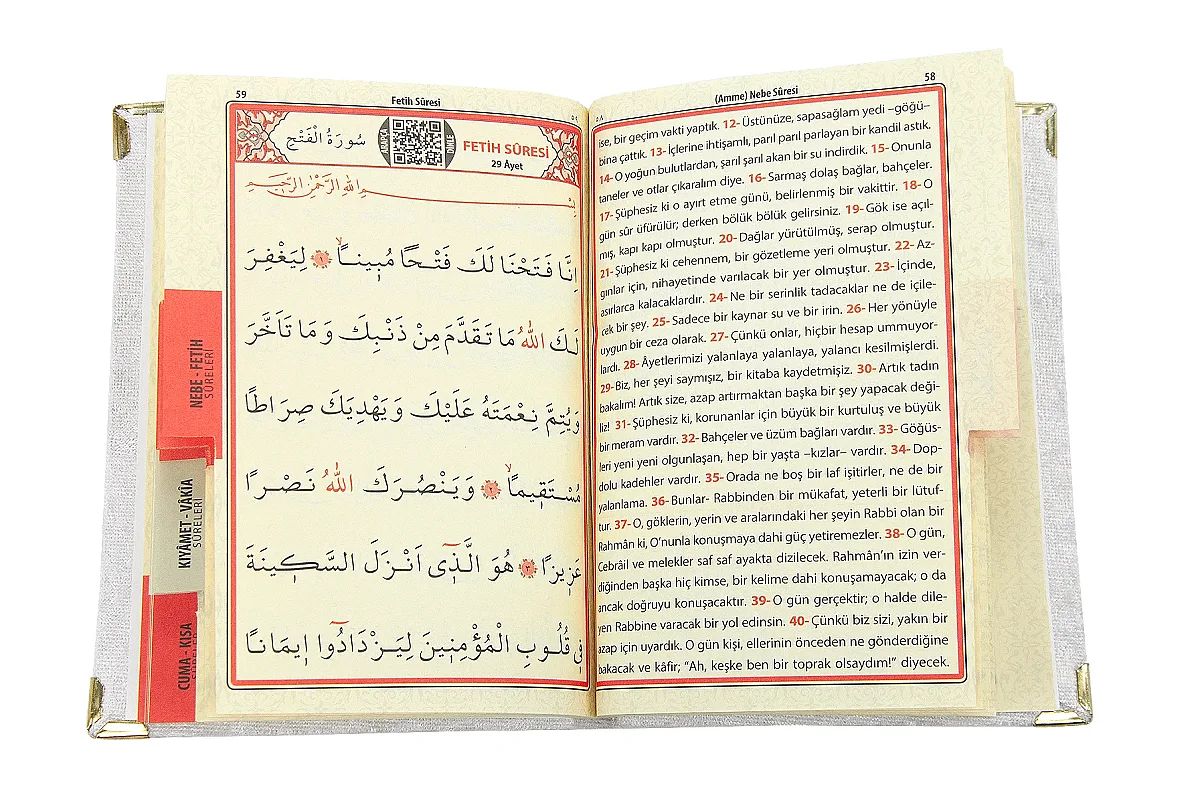 58
(Amme) Nebe Sûresi
٥٨
ise, bir geçim vakti yaptık. 12- Üstünüze, sapasağlam yedi –göğü–
bina çattık. 13- İçlerine ihtişamlı, parıl parıl parlayan bir kandil astık.
14- O yoğun bulutlardan, şarıl şarıl akan bir su indirdik. 15- Onunla
taneler ve otlar çıkaralım diye. 16- Sarmaş dolaş bağlar, bahçeler.
17- Şüphesiz ki o ayırt etme günü, belirlenmiş bir vakittir. 18- O
gün sûr üfürülür; derken bölük bölük gelirsiniz. 19- Gök ise açıl-
mış, kapı kapı olmuştur. 20- Dağlar yürütülmüş, serap olmuştur.
21- Şüphesiz ki cehennem, bir gözetleme yeri olmuştur. 22- Az-
gınlar için, nihayetinde varılacak bir yer olmuştur. 23- İçinde,
asırlarca kalacaklardır. 24- Ne bir serinlik tadacaklar ne de içile-
cek bir şey. 25- Sadece bir kaynar su ve bir irin. 26- Her yönüyle
uygun bir ceza olarak. 27- Çünkü onlar, hiçbir hesap ummuyor-
lardı. 28- Âyetlerimizi yalanlaya yalanlaya, yalancı kesilmişlerdi.
29- Biz, her şeyi saymışız, bir kitaba kaydetmişiz. 30- Artık tadın
bakalım! Artık size, azap artırmaktan başka bir şey yapacak deği-
liz! 31- Şüphesiz ki, korunanlar için büyük bir kurtuluş ve büyük
bir meram vardır. 32- Bahçeler ve üzüm bağları vardır. 33- Göğüs-
leri yeni yeni olgunlaşan, hep bir yaşta –kızlar– vardır. 34- Dop-
dolu kadehler vardır. 35- Orada ne boş bir laf işitirler, ne de bir
yalanlama. 36- Bunlar- Rabbinden bir mükafat, yeterli bir lütuf-
tur. 37- O, göklerin, yerin ve aralarındaki her şeyin Rabbi olan bir
Rahmân ki, O'nunla konuşmaya dahi güç yetiremezler. 38- O gün,
Cebrâil ve melekler saf saf ayakta dizilecek. Rahmân'ın izin ver-
diğinden başka hiç kimse, bir kelime dahi konuşamayacak; o da
ancak doğruyu konuşacaktır. 39- O gün gerçektir; o halde dile-
yen Rabbine varacak bir yol edinsin. 40- Çünkü biz sizi, yakın bir
azap için uyardık. O gün kişi, ellerinin önceden ne gönderdiğine
bakacak ve kâfir; “Ah, keşke ben bir toprak olsaydım!” diyecek.
59
Fetih Sûresi
سُورَةُ الْفَتْحِ
ARAPÇA
DİNLE
FETİH SÛRESİ
29 Âyet
بِسْمِ اللّٰهِ الرَّحْمٰنِ الرَّحٖيمِ
اِنَّا فَتَحْنَا لَكَ فَتْحًا مُبٖينًاۙ ﴿١﴾ لِيَغْفِرَ
لَكَ اللّٰهُ مَا تَقَدَّمَ مِنْ ذَنْبِكَ وَمَا تَاَخَّرَ
وَيُتِمَّ نِعْمَتَهُ عَلَيْكَ وَيَهْدِيَكَ صِرَاطًا
مُسْتَقٖيمًاۙ ﴿٢﴾ وَيَنْصُرَكَ اللّٰهُ نَصْرًا
عَزٖيزًا ﴿٣﴾ هُوَ الَّذٖٓى اَنْزَلَ السَّكٖينَةَ
فٖى قُلُوبِ الْمُؤْمِنٖينَ لِيَزْدَادُٓوا اٖيمَانًا
NEBE - FETİH
SÛRELERİ
KIYÂMET - VÂKIA
SÛRELERİ
CUMA - KISA